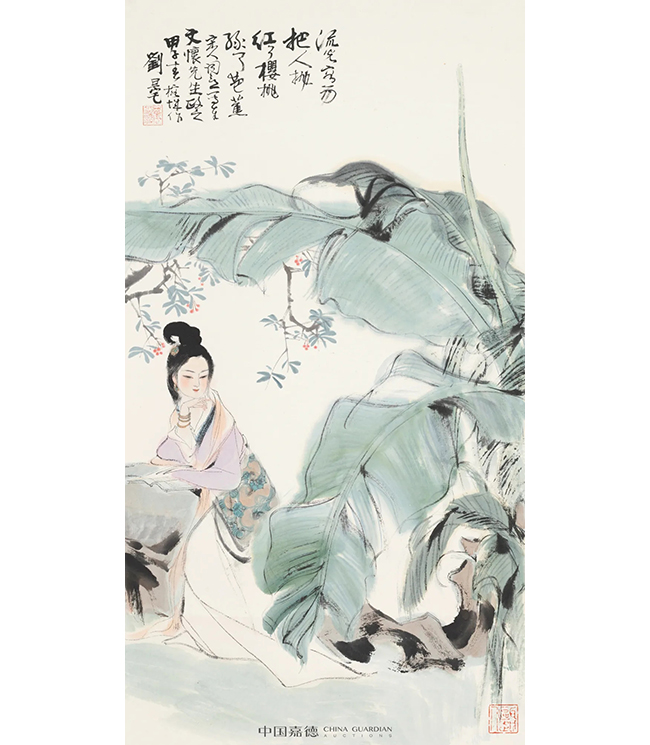 流光容易
把人抛
红了櫻桃
绿了芭蕉
宋人词意
文懷先生
甲子
劉旦宅
中国嘉德 CHINA GUARDIAN
AUCTIONS